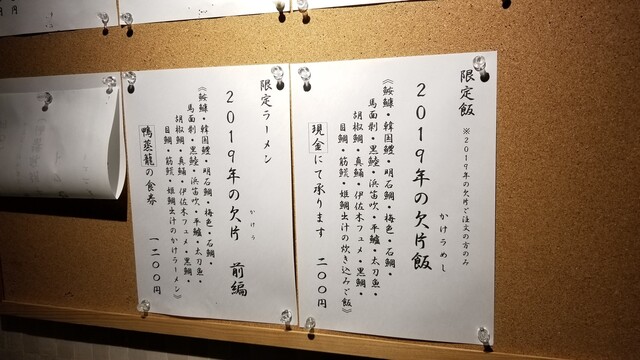 限定飯
※2019年の欠片ご注文の方のみ
かけらめし
2019年の欠片飯
《鮟鱇・韓国鰹・明石鯛・梅色・石鯛・
馬面剥・黒鯥・浜笛吹・平鱸・太刀魚・
胡椒鯛・真鯒・伊佐木フュメ・黒鯛・
目鯛・筋鰹・姫鯛出汁の炊き込みご飯》
現金にて承ります 二〇〇円
限定ラーメン
かけら
2019年の欠片 前編
《鮟鱇・韓国鰹・明石鯛・梅色・石鯛・
馬面剥・黒鯥・浜笛吹・平鱸・太刀魚・
胡椒鯛・真鯒・伊佐木フュメ・黒鯛・
目鯛・筋鰹・姫鯛出汁のかけラーメン》
鴨蒸籠の食券 一二〇〇円
円